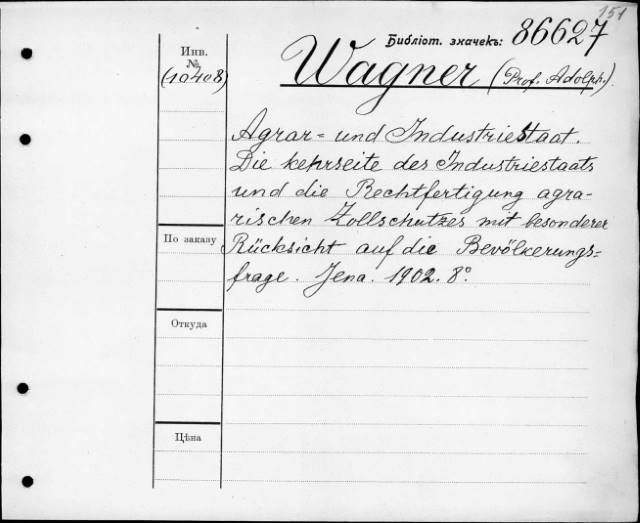 151
Библіот. значекъ: 86627
Инв.
№
(10408)
Wagner (Prof. Adolph.)
Agrar= und Industriestaat.
Die kehrseite des Industriestaats
und die Rechtfertigung agra-
rischen Zollschutzes mit besonderer
По заказу
Rücksicht auf die Bevölkerungs=
frage. Jena. 1902. 8°.
Откуда
Цѣна